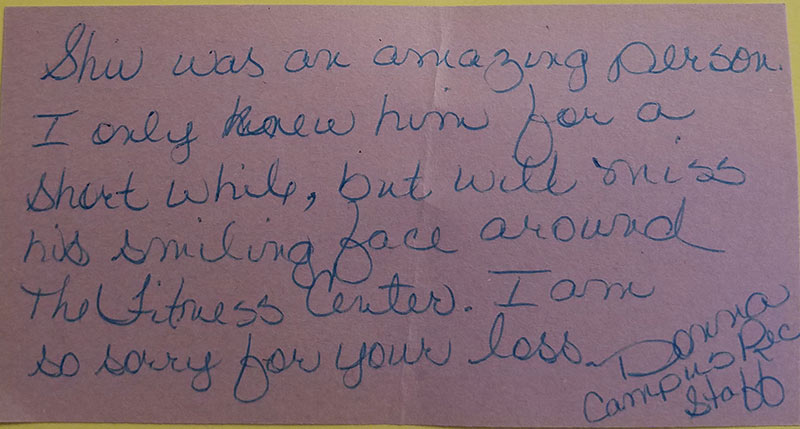 Shiv was an amazing person.
I only knew him for a
short while, but will miss
his smiling face around
The Fitness Center. I am
so sorry for your loss. Donna
Campus Rec
Staff